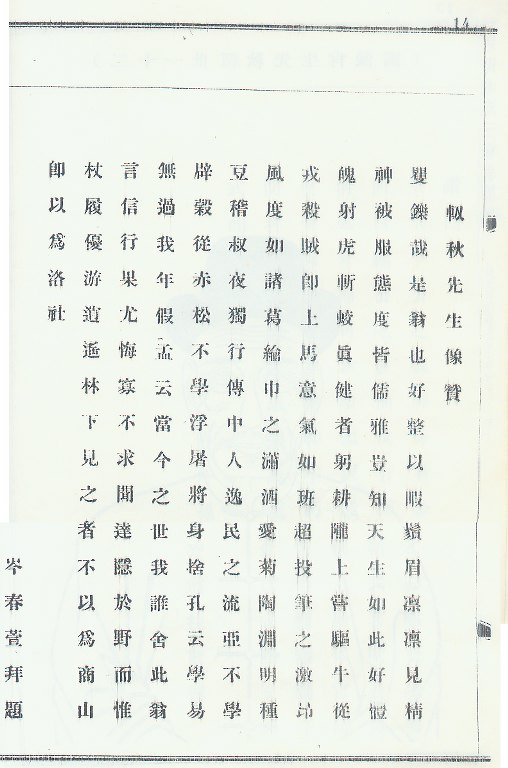 14
馭秋先生像贊
矍鑠哉是翁也好整以暇鬚眉凛凛見精
神被服態度皆儒雅豈知天生如此好體
魄射虎斬蛟眞健者躬耕隴上嘗驅牛從
戎殺賊卽上馬意氣如班超投筆之激昂
風度如諸葛綸巾之瀟洒愛菊陶淵明種
豆稽叔夜獨行傳中人逸民之流亞不學
辟穀從赤松不學浮屠將身捨孔云學易
無過我年假孟云當今之世我誰舍此翁
言信行果尤悔寡不求聞達隱於野而惟
杖履優游逍遙林下見之者不以爲商山
卽以爲洛社
岑春萱拜題